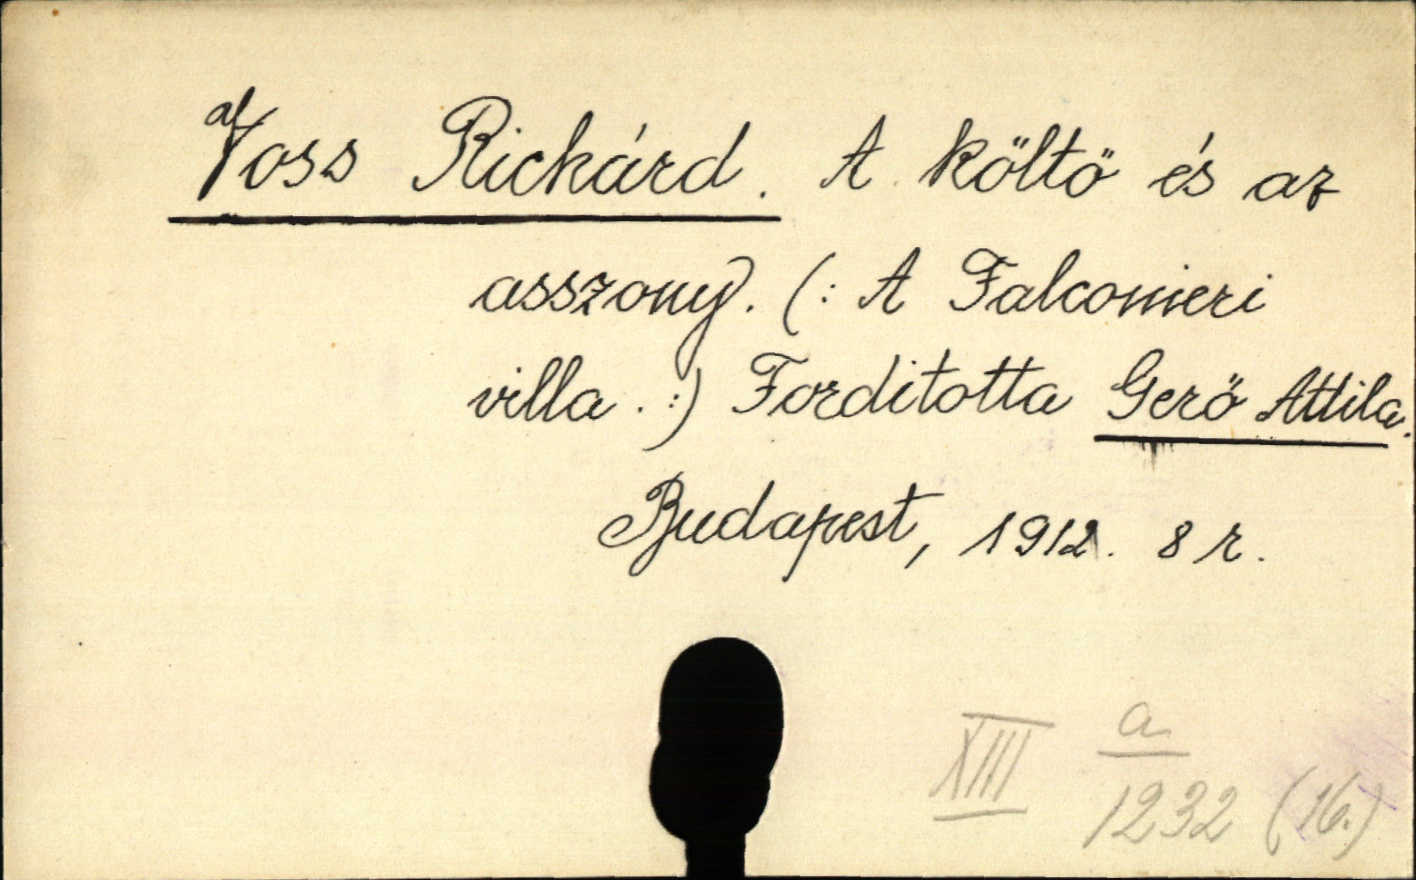 Voss Rickárd. A költö és az
asszony. (: A Falconieri
villa. :) Forditotta Gerő Attila.
Budapest, 1912. 8 r.
XIII a
1232 (16.)